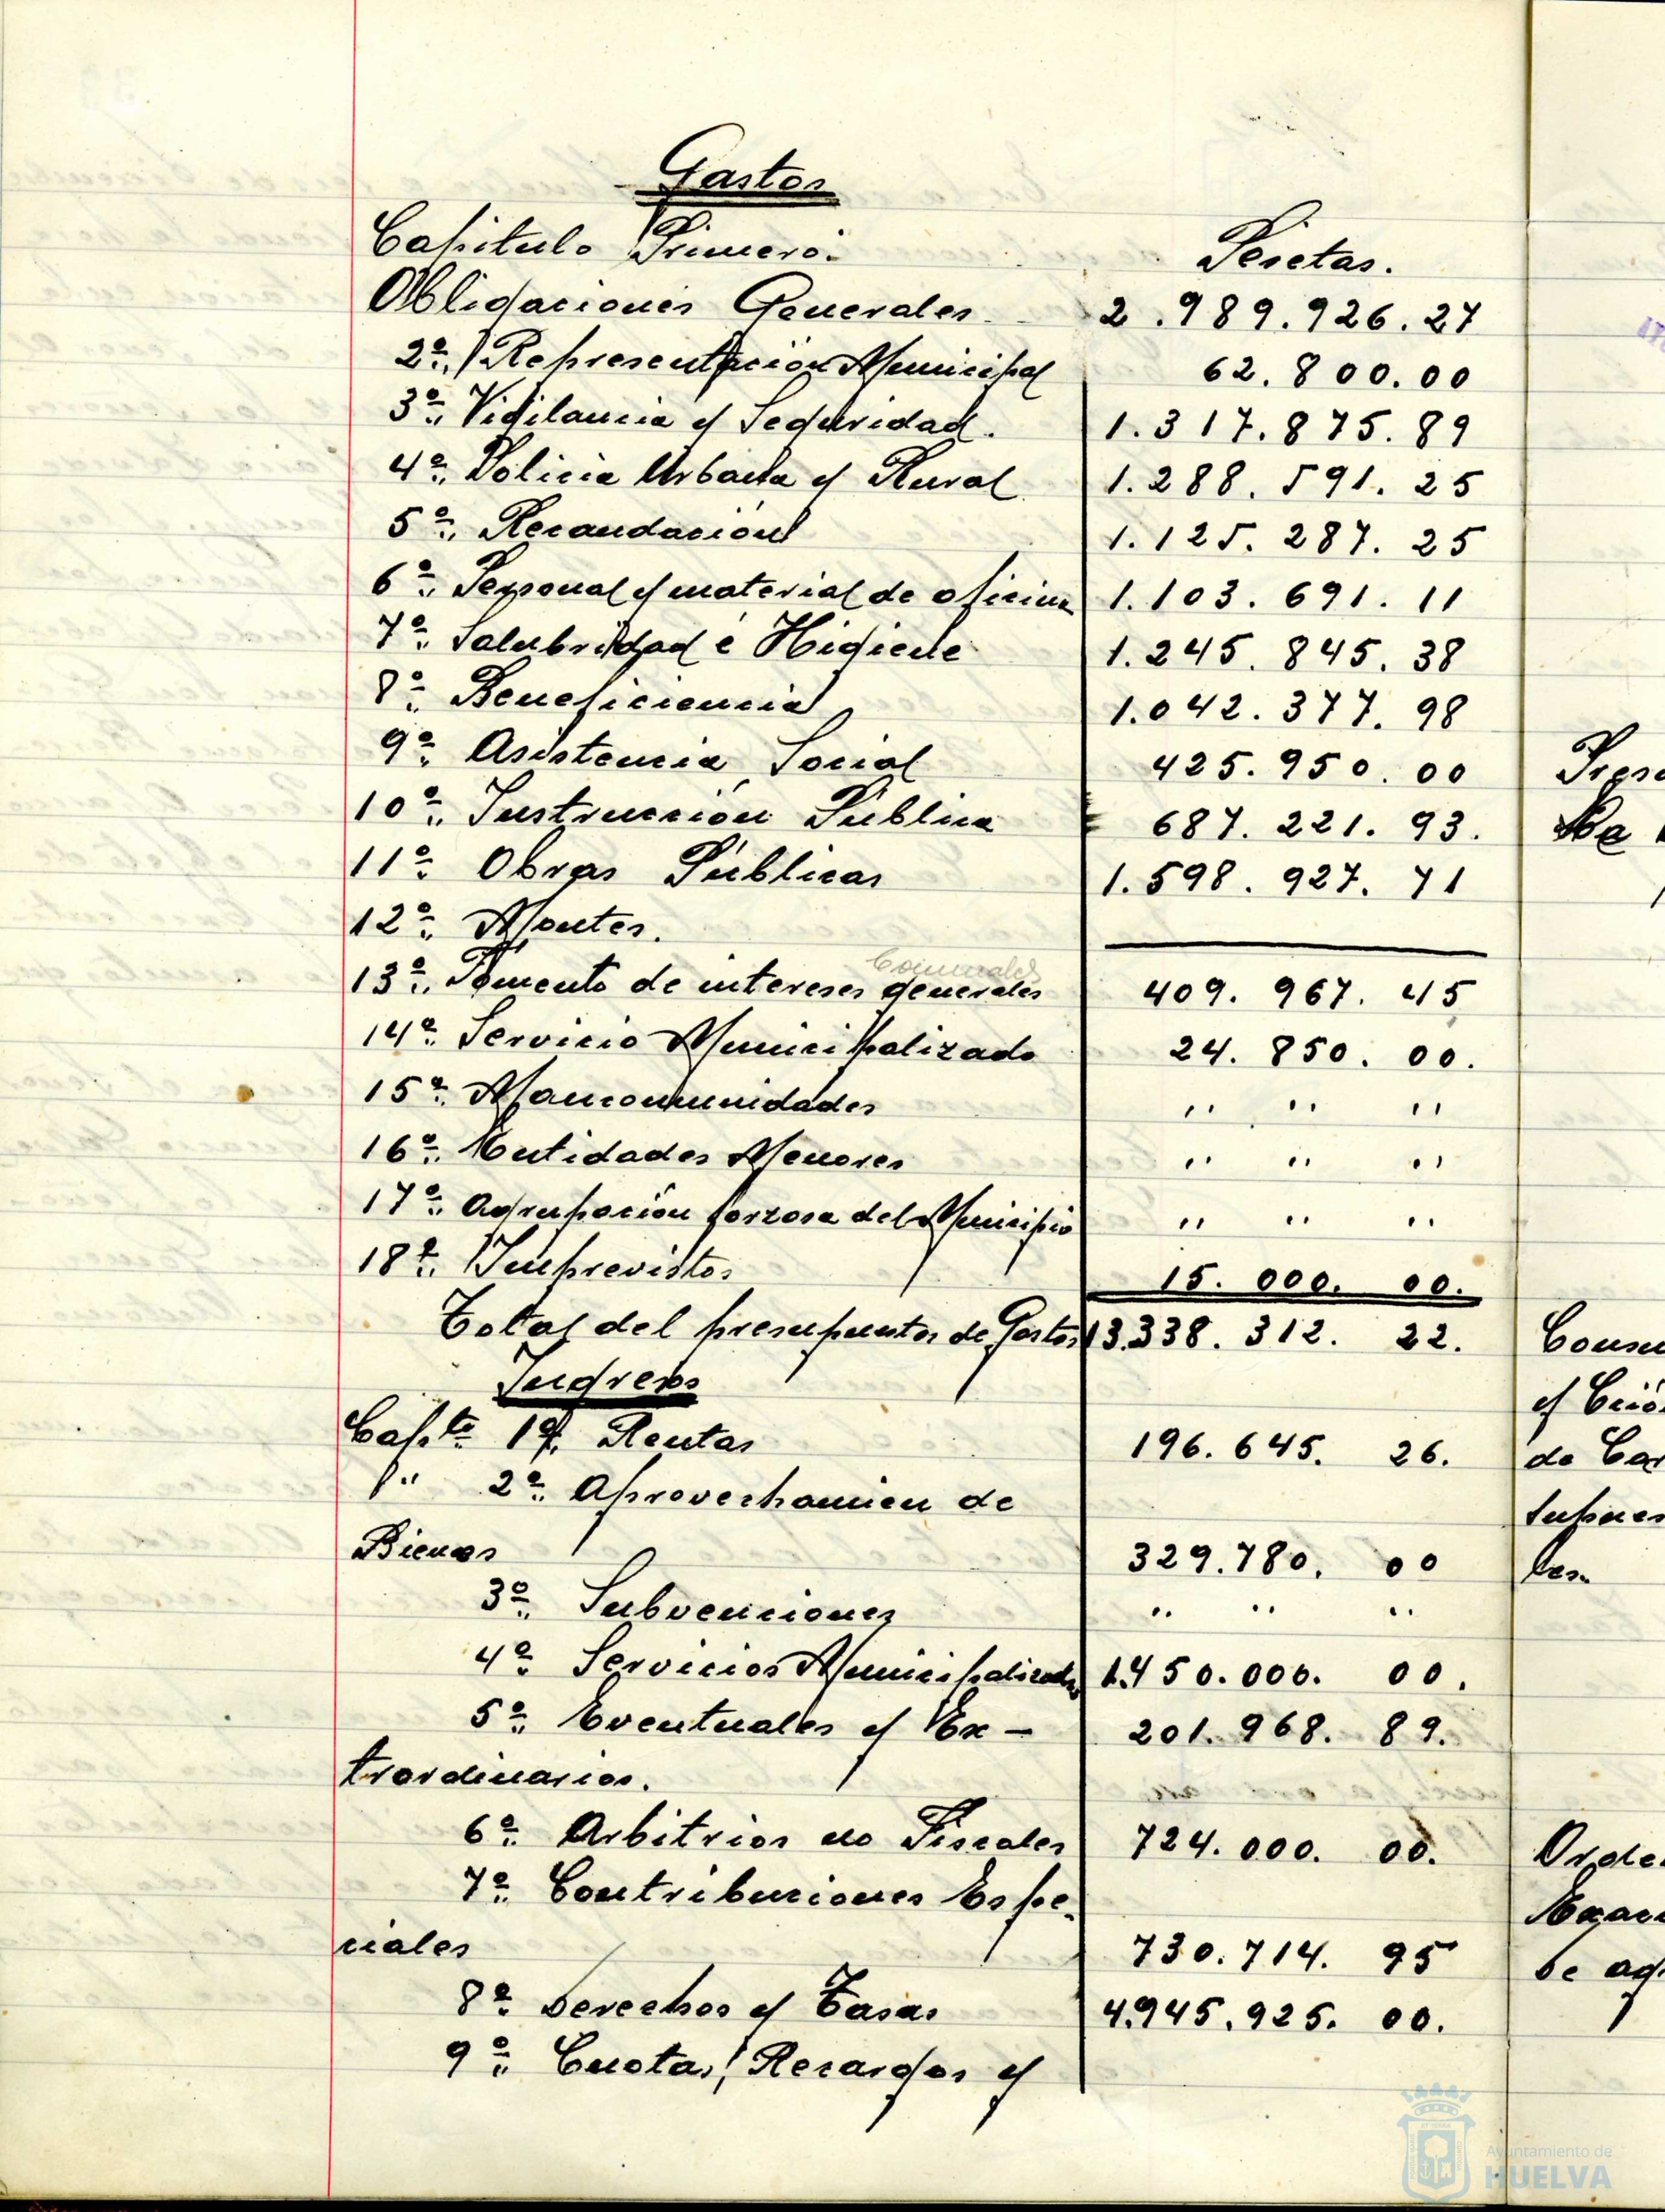 Gastos
Capitulo Primero. Pesetas.
Obligaciones Generales 2.989.926.27
2º. Representación Municipal 62.800.00
3º. Vigilancia y Seguridad. 1.317.875.89
4º. Policia Urbana y Rural 1.288.591.25
5º. Recaudación 1.125.287.25
6º. Personal y material de oficina 1.103.691.11
7º. Salubridad é Higiene 1.245.845.38
8º. Beneficiencia 1.042.377.98
9º. Asistencia Social 425.950.00
10º. Instrucción Pública 687.221.93.
11º. Obras Públicas 1.598.927.71
12º. Montes.
Comunales
13º. Fomento de intereses generales 409.967.45
14º. Servicio Municipalizado 24.850.00.
15º. Mancomunidades " " "
16º. Entidades Menores " " "
17º. Agrupación forzosa del Municipio " " "
18º. Imprevistos 15.000.00.
Total del presupuestos de Gastos 13.338.312.22.
Ingresos
Capto. 1º. Rentas 196.645.26.
" 2º. Aprovechamien de
Bienes 329.780.00
3º. Subvenciones " " "
4º. Servicios Municipalizado 1.450.000.00.
5º. Eventuales y Ex- 201.968.89.
traordinarios.
6º. Arbitrios no Fiscales 724.000.00.
7º. Contribuciones Espe-
ciales 730.714.95
8º. Derechos y Tasas 4.945.925.00.
9º. Cuotas, Recargos y
Ayuntamiento de
HUELVA